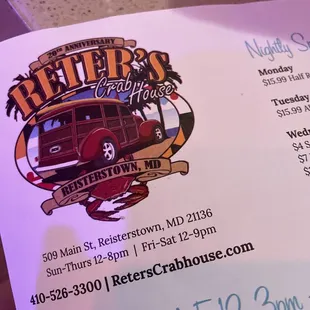 20TH ANNIVERSARY
RETER'S
Crab House
REISTERSTOWN, MD
509 Main St, Reisterstown, MD 21136
Sun-Thurs 12-8pm | Fri-Sat 12-9pm
410-526-3300 | RetersCrabhouse.com
Nightly
Monday
$15.99 Half
Tuesday
$15.99
$4
$7
3pm